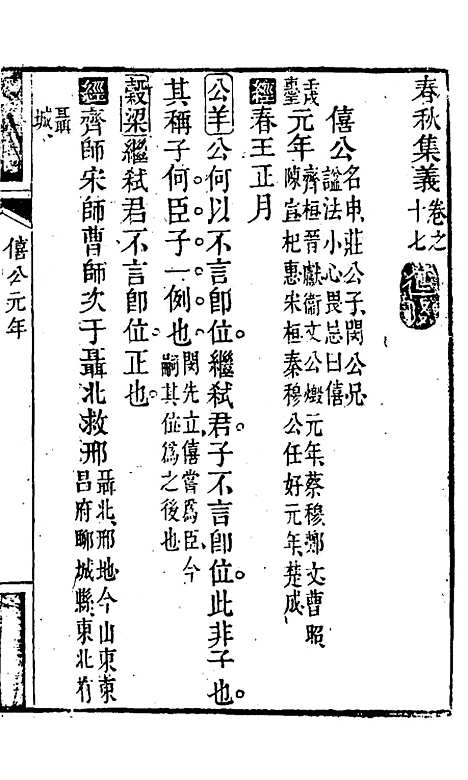 春秋集義卷之十七
僖公名申莊公子閔公兄謚法小心畏忌曰僖
元年齊桓晉獻衞文公燬元年蔡穆鄭文曹昭陳宣杞惠宋桓秦穆公任好元年楚成
經春王正月
公羊公何以不言即位繼弑君子不言即位此非子也
其稱子何臣子一例也閔先立僖嘗爲臣今嗣其位爲之後也
穀梁繼弑君不言即位正也
經齊師宋師曹師次于聶北救邢聶北邢地今山東東昌府聊城縣東北有
聶城
僖公元年